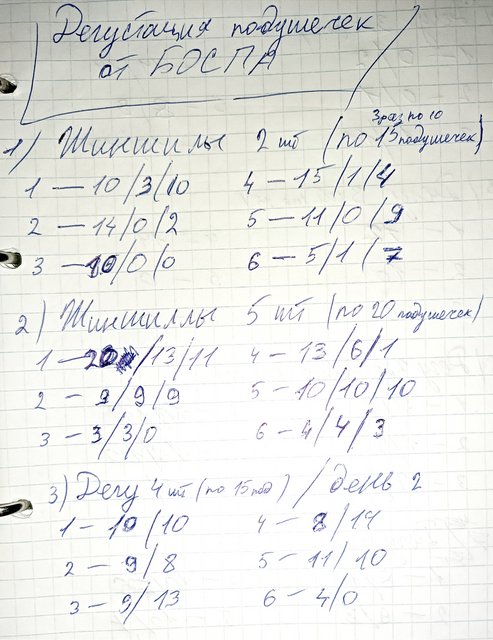 Дегустация подушечек
от БОСПА
3 раз по 10
1) Шиншилы 2 шт (по 15 подушечек)
1 — 10/3/10 4 — 15/1/4
2 — 14/0/2 5 — 11/0/9
3 — 10/0/0 6 — 5/1/7
2) Шиншиллы 5 шт (по 20 подушечек)
1 — 20/13/11 4 — 13/6/1
2 — 9/9/9 5 — 10/10/10
3 — 3/3/0 6 — 4/4/3
3) Дегу 4 шт (по 15 под) / день 2
1 — 10/10 4 — 8/14
2 — 9/8 5 — 11/10
3 — 9/13 6 — 4/0